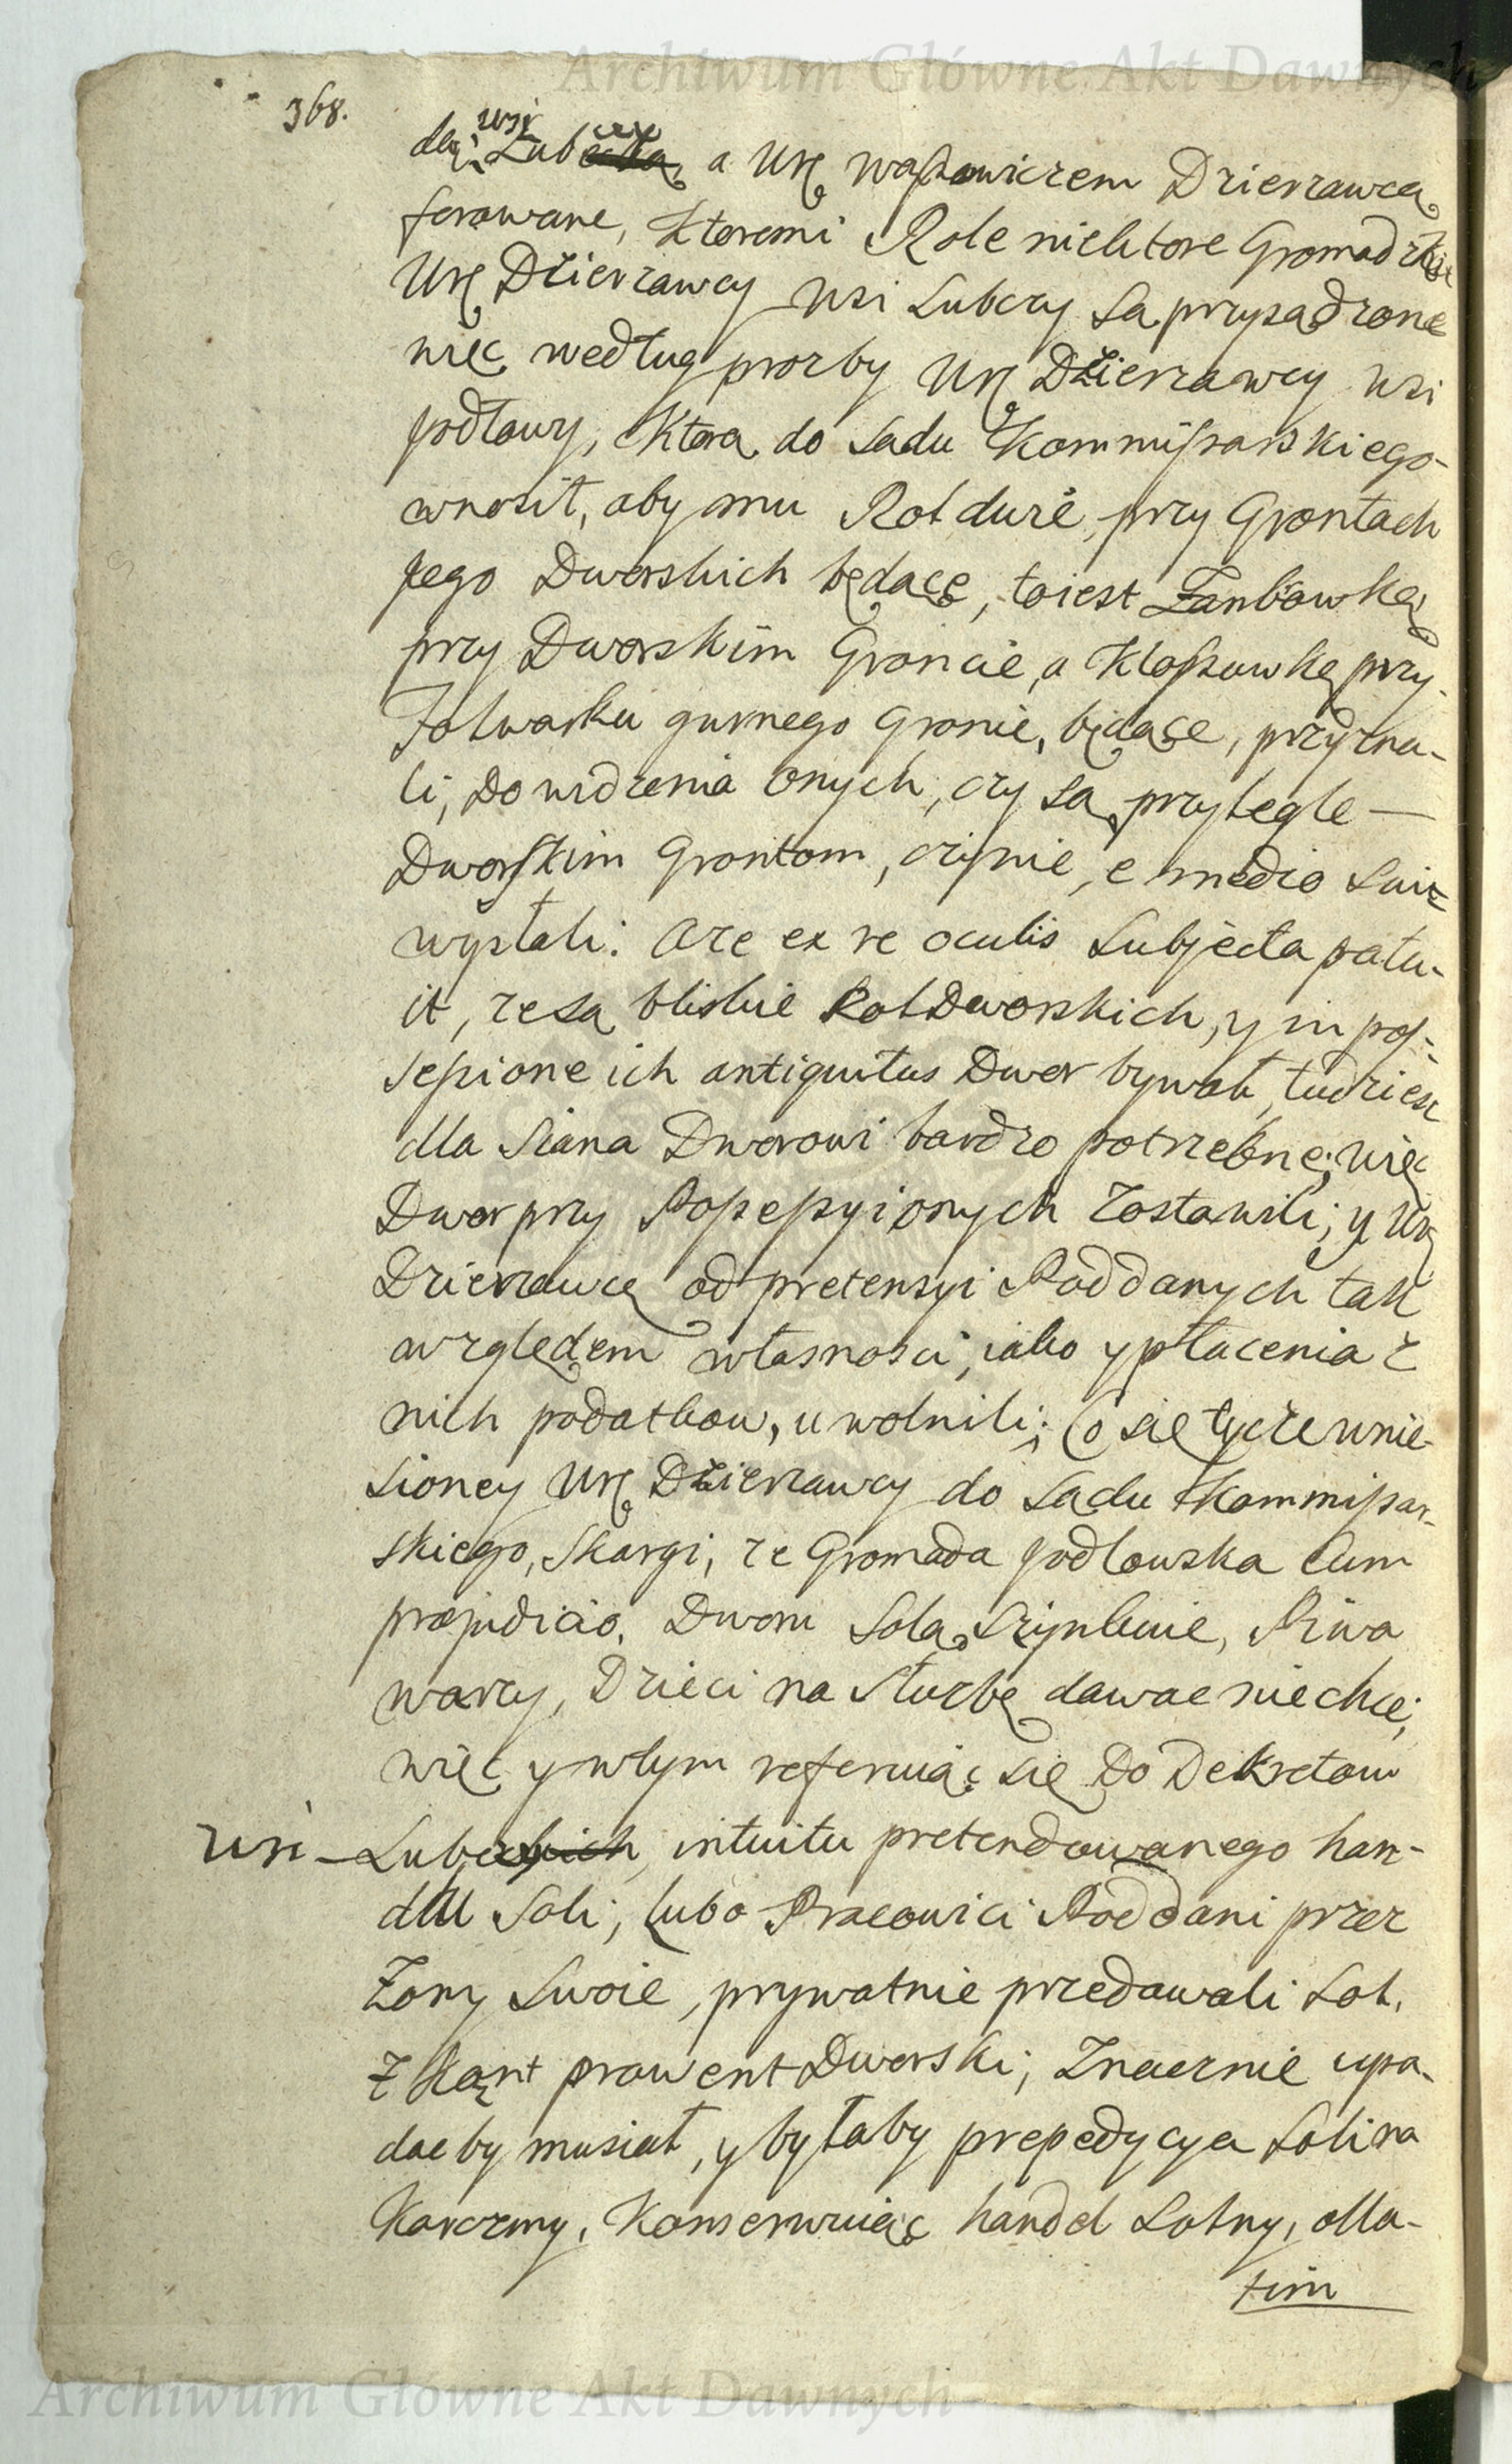 Archiwum Główne Akt Dawnych
368.
dą wsi Lubczy a Urę Wąsowiczem Dzierzawcą
ferowane, ktoremi Role niektore Gromadzkie
Urę Dzierzawcy wsi Lubczy są przysądzone
więc według prozby Urę Dzierzawcy wsi
Jodłowy, ktorą do Sadu Kommissarskiego
wnosił, aby mu Rol duże, przy Grontach
Jego Dworskich będące, toiest Zambowkę
przy Dworskim Groncie, a Klossowkę przy
Folwarku gurnego Gronie, będące, przyzna-
li, Do widzenia onych, czy są przyległe —
Dworskim Grontom, czy nie, e medio Sui
wysłali: Aze ex re oculis Subjecta patu-
it, ze są bliskie Rol Dworskich, y in pos-
sessione ich antiquitus Dwor bywał, tudziesz
dla Siana Dworowi bardzo potrzebne; więc
Dwor przy Possessyi onych zostawili; y Urę
Dzierzawcę od pretensyi Poddanych tak
względem własnosci, iako y płacenia z
nich podatkow, uwolnili; Co się tycze wnie-
sioney Urę Dzierzawcy do Sadu Kommissar-
skiego, Skargi, ze Gromada Jodłowska cum
præjudicio, Dworu Solą Szynkuie, Piwa
warzy, Dzieci na Słuzbę dawac niechce;
więc y wtym referuiąc się Do Dekretow
wsi – Lubczy intuitu pretendowanego han-
dlu Soli, lubo Pracowici Poddani przez
Zony Swoie, prywatnie przedawali Sol,
z kąnt prowent Dworski, Znacznie upa-
dac by musiał, y byłaby prepedycya Soli na
Karczmy, Konserwuiąc handel Solny, olla-
tim
Archiwum Główne Akt Dawnych